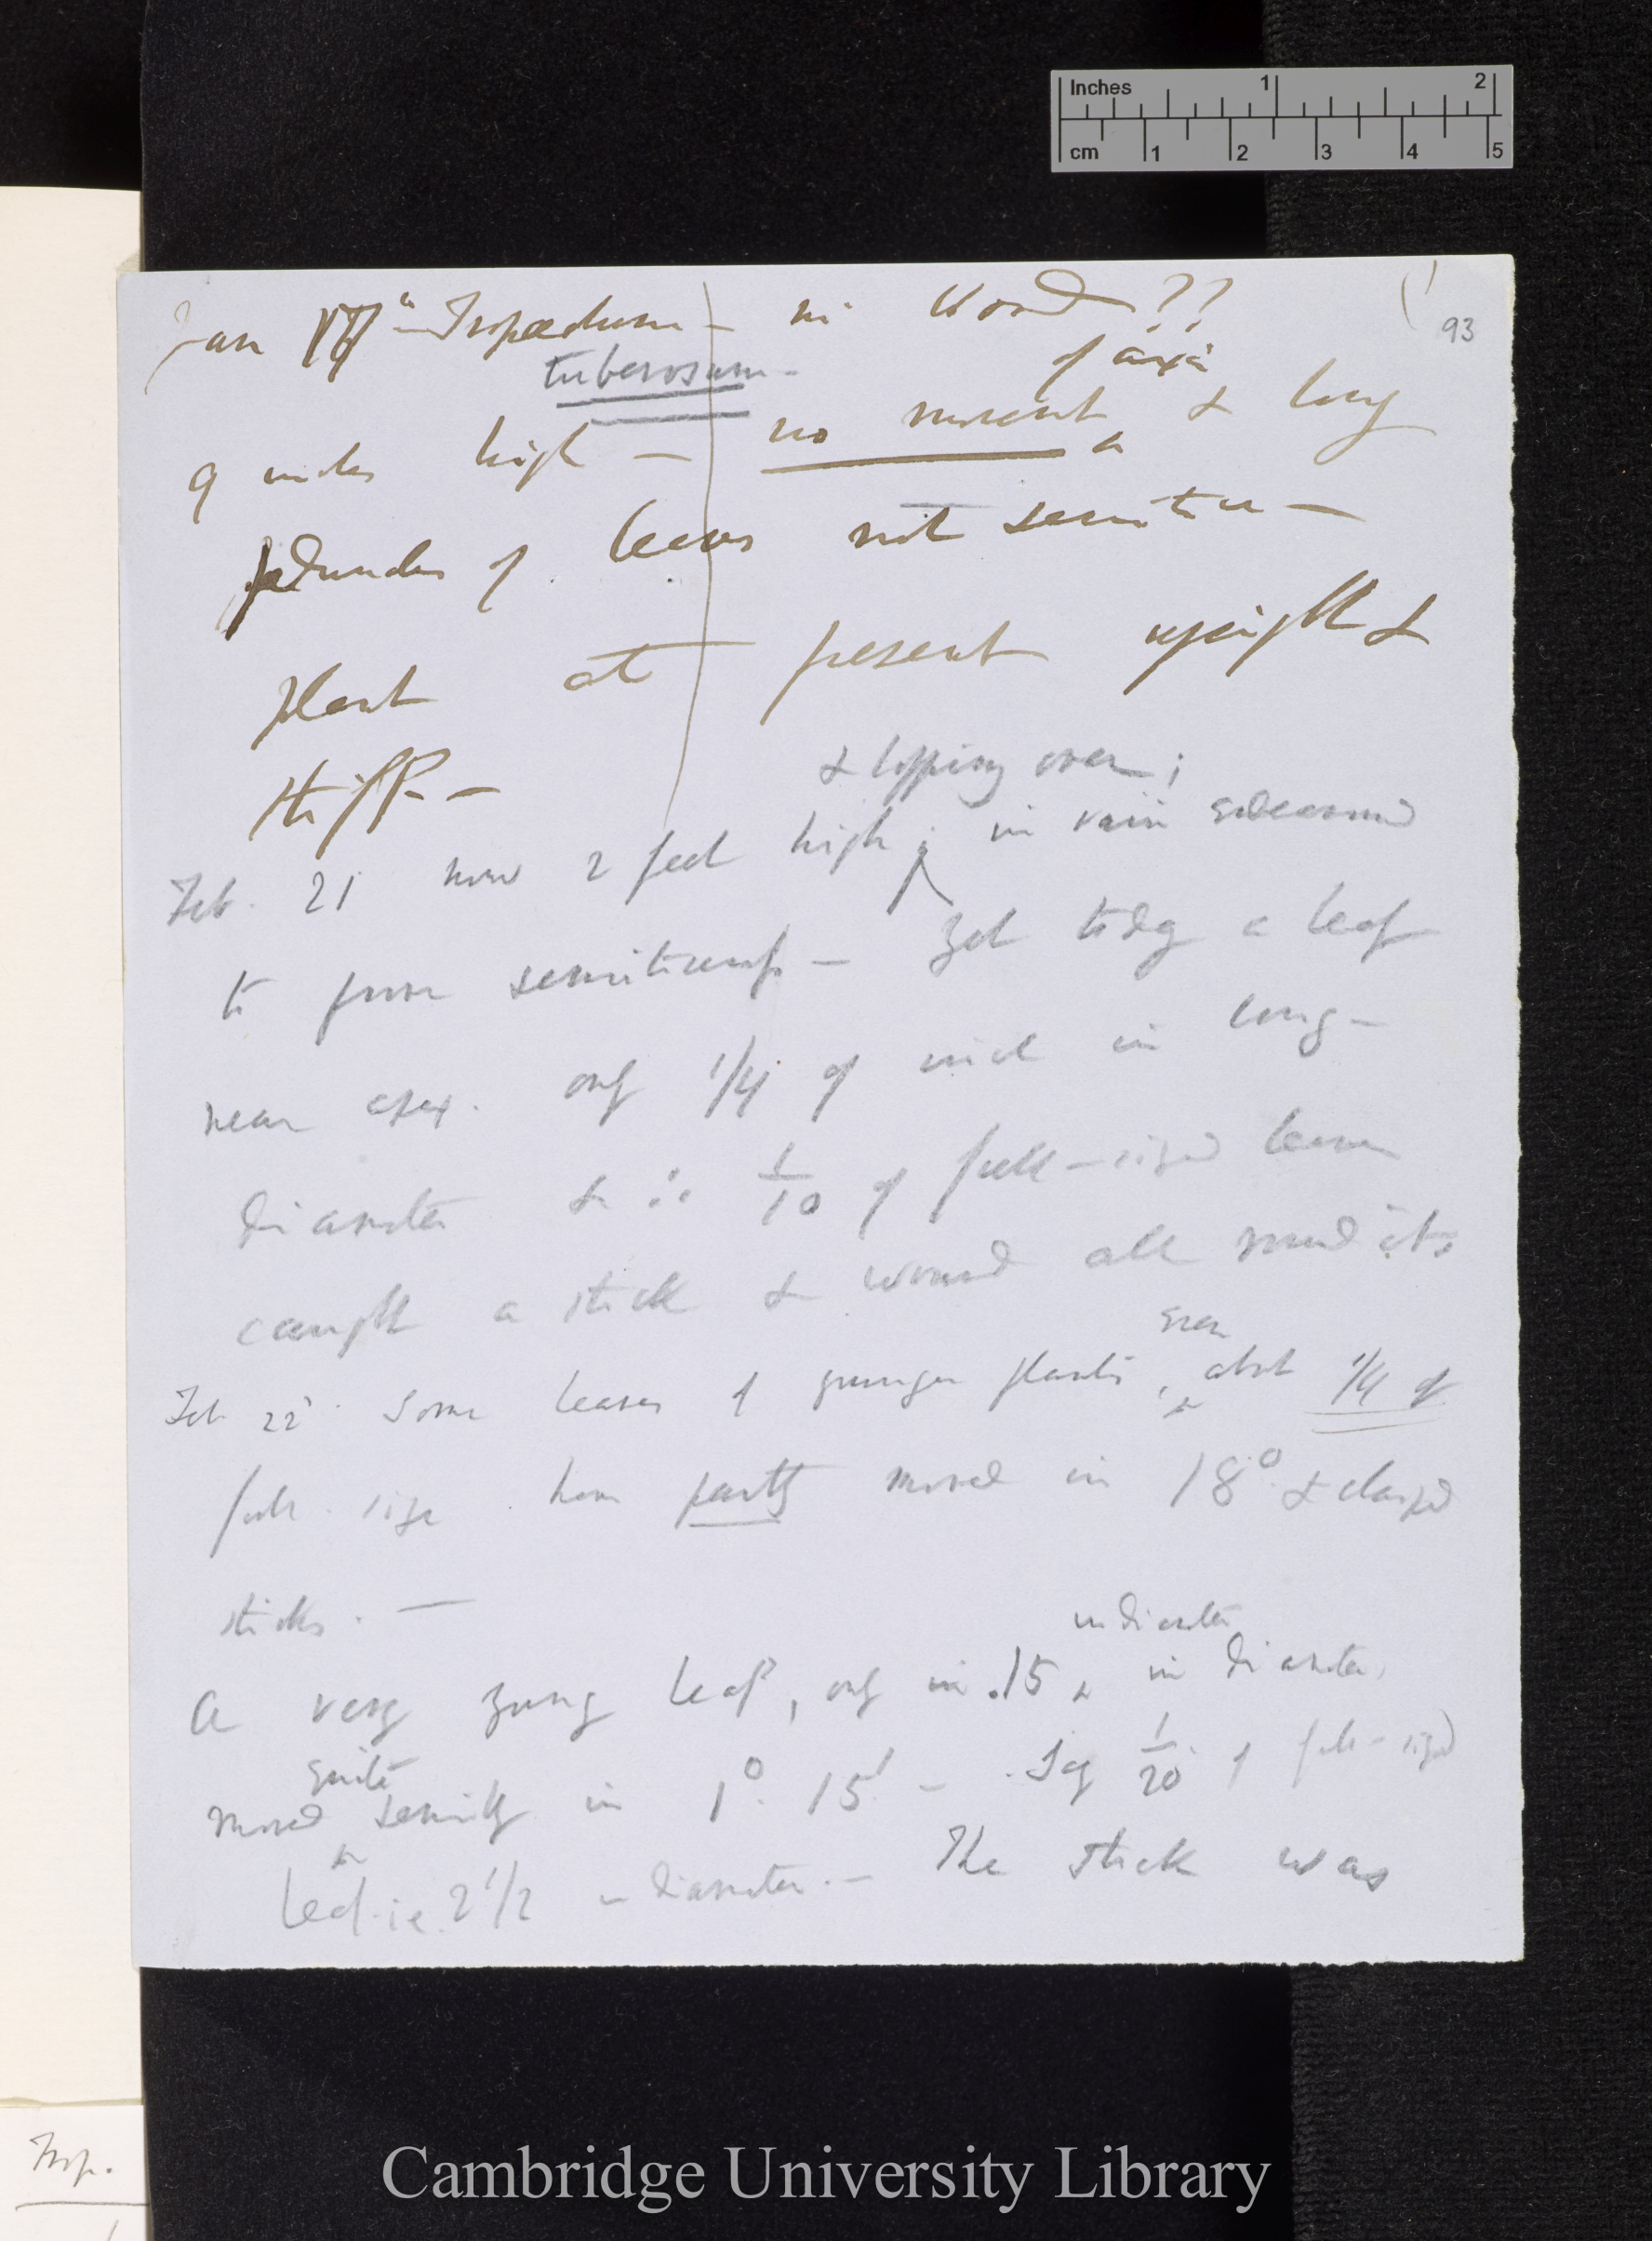 Inches 1 2
cm 1 2 3 4 5
93
Jan 17th – Tropæolum – in
tuberosum –
of axis
9 inches high – no movement & long
peduncles of leaves not sensitive –
Plant at present upright &
stiff. –
& lopping over;
Feb. 21 now 2 feet high; in vain endeavoured
to prove sensitiveness – Yet today a leaf
near apex. only 1/4 of inch in long –
diameter & ∴ 1/10 of full-sized leaves
caught a stick & wound all round it
even
Feb 22d. Some leaves of younger plants, about 1/4 of
full size have partly moved in 18° & clasped
sticks. –
in diameter
A very young leaf, only in .15 in diameter,
quite
moved sensibly in 1° 15' – Say 1/20 of full-sized
leaf. i.e. 2 1/2 in diameter. – The stick was
Trop.
Cambridge University Library